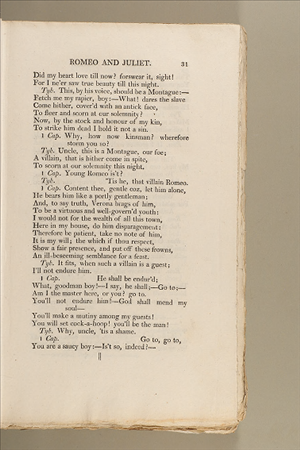 ROMEO AND JULIET. 31
Did my heart love till now? forswear it, sight!
For I ne'er saw true beauty till this night.
Tyb. This, by his voice, should be a Montague:—
Fetch me my rapier, boy:—What! dares the slave
Come hither, cover'd with an antick face,
To fleer and scorn at our solemnity?
Now, by the stock and honour of my kin,
To strike him dead I hold it not a sin.
1 Cap. Why, how now kinsman? wherefore
storm you so?
Tyb. Uncle, this is a Montague, our foe;
A villain, that is hither come in spite,
To scorn at our solemnity this night.
1 Cap. Young Romeo is't?
Tyb. 'Tis he, that villain Romeo.
1 Cap. Content thee, gentle coz, let him alone,
He bears him like a portly gentleman;
And, to say truth, Verona brags of him,
To be a virtuous and well-govern'd youth:
I would not for the wealth of all this town,
Here in my house, do him disparagement:
Therefore be patient, take no note of him,
It is my will; the which if thou respect,
Show a fair presence, and put off these frowns,
An ill-beseeming semblance for a feast.
Tyb. It fits, when such a villain is a guest;
I'll not endure him.
1 Cap. He shall be endur'd;
What, goodman boy!—I say, he shall;—Go to;—
Am I the master here, or you? go to.
You'll not endure him!—God shall mend my
soul—
You'll make a mutiny among my guests!
You will set cock-a-hoop! you'll be the man!
Tyb. Why, uncle, 'tis a shame.
1 Cap. Go to, go to,
You are a saucy boy:—Is't so, indeed?—